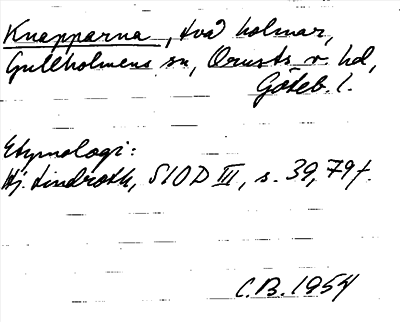 Knapparna, två holmar,
Gullholmens sn, Orusts v. hd,
Göteb. l.
Etymologi:
Hj. Lindroth, SIOD III, s. 39, 79 f.
C.B. 1954